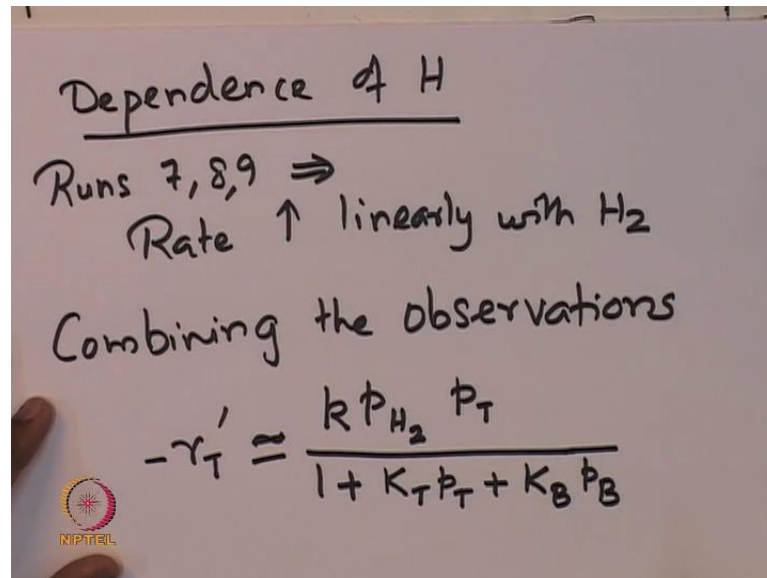 Dependence of H
Runs 7, 8, 9 ⇒
Rate ↑ linearly with H₂
Combining the observations
-r_T' ≃ k p_H₂ p_T / (1 + K_T p_T + K_B p_B)
NPTEL